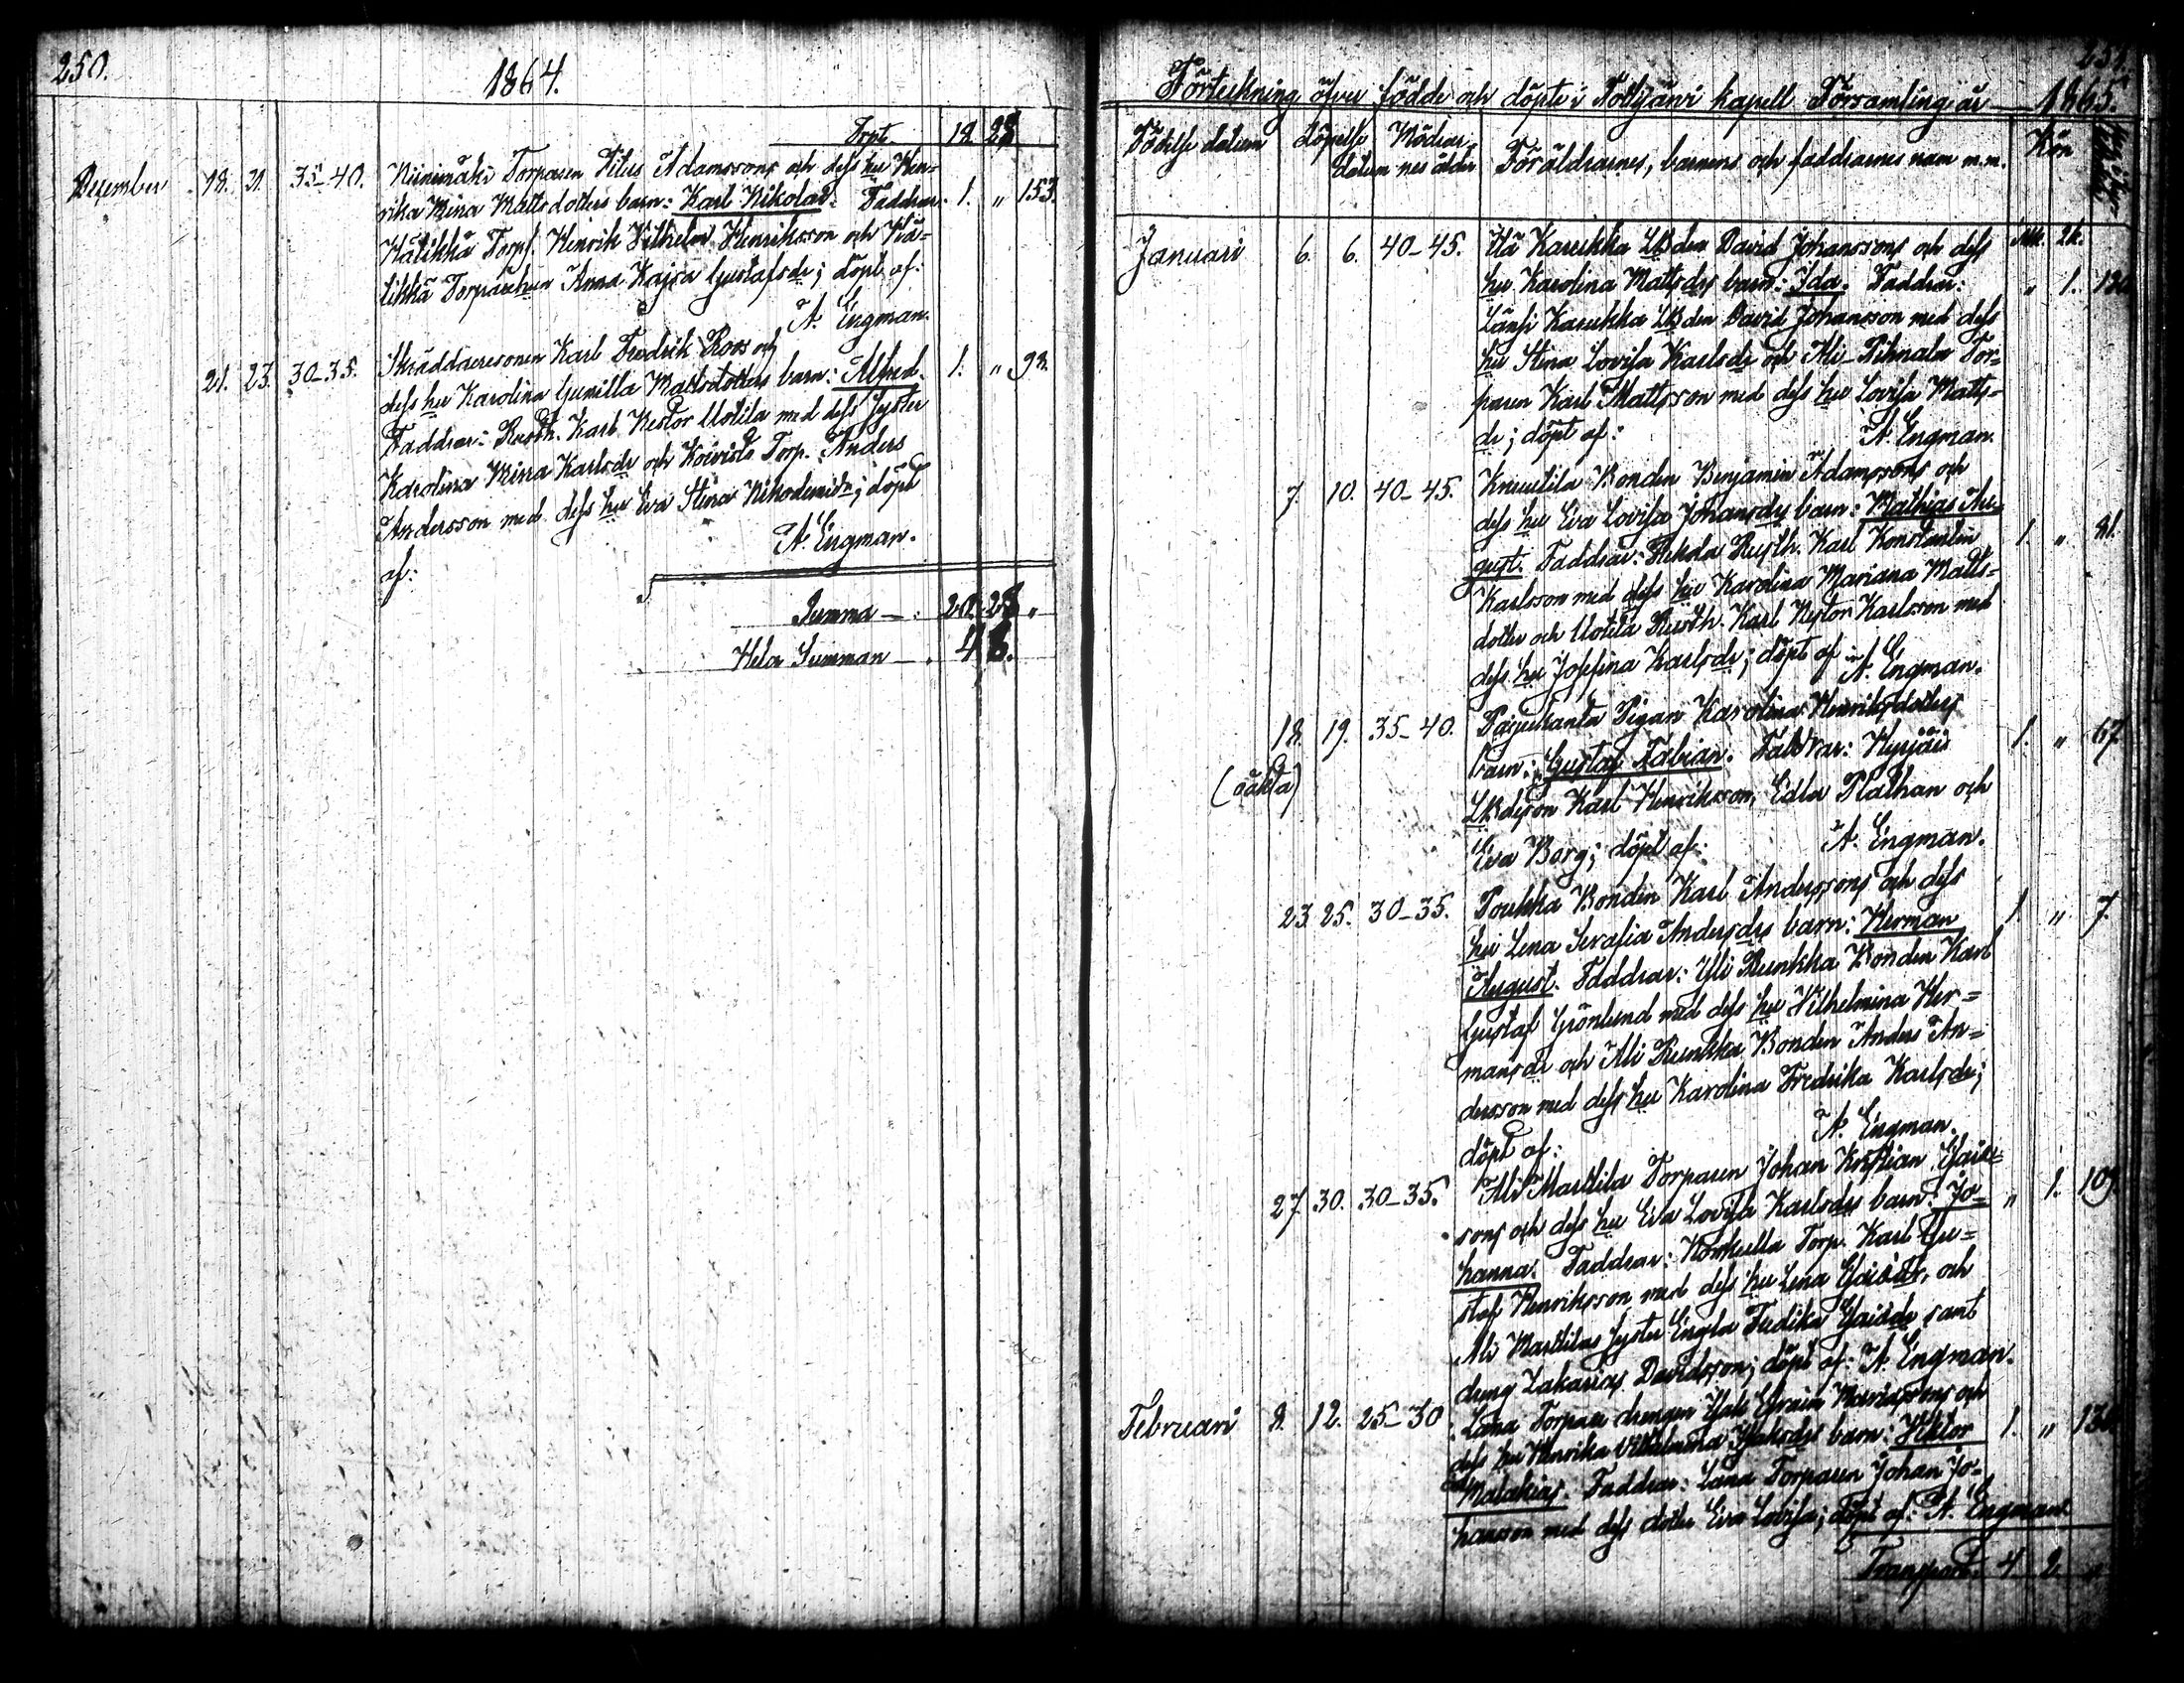 250.
1864.
Trpt. 18. 28.
December 18. 31. 35-40. Niinimäki Torparen Titus Adamssons och dess hu Hen=
rika Mina Mattsdotters barn: Karl Nikolai. Faddrar: 1. " 153.
Hätikkä Torp. Henrik Wilhelm Henriksson och Hä=
tikkä Torparehu Anna Kajsa Gustafsdr; döpt af:
A. Engman.
21. 23. 30-35. Skräddaresonen Karl Fredrik Roos och
dess hu Karolina Gunilla Mattsdotters barn: Alfred. 1. " 98.
Faddrar: Rusth. Karl Nestor Uotila med dess syster
Karolina Mina Karlsdr och Koivisto Torp. Anders
Andersson med dess hu Eva Stina Nikodemidr; döpt
af:
A. Engman.
Summa — : 20. 28. "
Hela Summan — . 48.
251.
Förteckning öfver födde och döpte i Pottijärvi kapell Församling år — 1865.
Födelse datum Döpelse datum Mödrar- nes ålder Föräldrarnes, barnens och faddrarnes nam m.m. Kön
Mk. Qk.
Januari 6. 6. 40-45. Itä Karukka LBden David Johanssons och dess
hu Karolina Mattsdrs barn: Ida. Faddrar: " 1. 130
Länsi Karukka LBden David Johansson med dess
hu Stina Lovisa Karlsdr och Ali-Pihnala Tor=
paren Karl Mattsson med dess hu Lovisa Matts=
dr; döpt af: A. Engman.
7. 10. 40-45. Knuutila Bonden Benjamin Adamssons och
dess hu Eva Lovisa Johansdrs barn: Mathias Au=
gust. Faddrar: Rekola Rusth. Karl Konstantin 1. " 81.
Karlsson med dess hu Karolina Mariana Matts=
dotter och Uotila Rusth. Karl Nestor Karlsson med
dess hu Josefina Karlsdr; döpt af A. Engman.
18. 19. 35-40. Pajuranta Pigan Karolina Henriksdotters
(oäkta) barn: Gustaf Fabian. Faddrar: Kyrjäis 1. " 67.
LBdeson Karl Henriksson, Edla Plathan och
Eva Borg; döpt af: A. Engman.
23. 25. 30-35. Poukka Bonden Karl Anderssons och dess
hu Lena Serafia Andersdrs barn: Herman 1. " 7.
August. Faddrar: Yli Runkka Bonden Karl
Gustaf Grönlund med dess hu Vilhelmina Her=
mansdr och Ali Runkka Bonden Anders An=
dersson med dess hu Karolina Fredrika Karlsdr;
döpt af: A. Engman.
27. 30. 30-35. Ali Marttila Torparen Johan Kristian Esais=
sons och dess hu Eva Lovisa Karlsdrs barn: Jo= " 1. 109.
hanna. Faddrar: Torp. Karl Gu=
staf Henriksson med dess hu Lena Esaiædr, och
Ali Marttilas syster Engla Fredika Esaiædr samt
dreng Zakarias Davidsson; döpt af: A. Engman.
Februari 8. 12. 25-30 Lana Torpare drengen Isak Efraim Mariassons och
dess hu Henrika Vilhelmina Isaksdrs barn: Viktor 1. " 136
Malakias. Faddrar: Lana Torparen Johan Jo=
hansson med dess dotter Eva Lovisa; döpt af: A. Engman.
Transport. 4 2. "